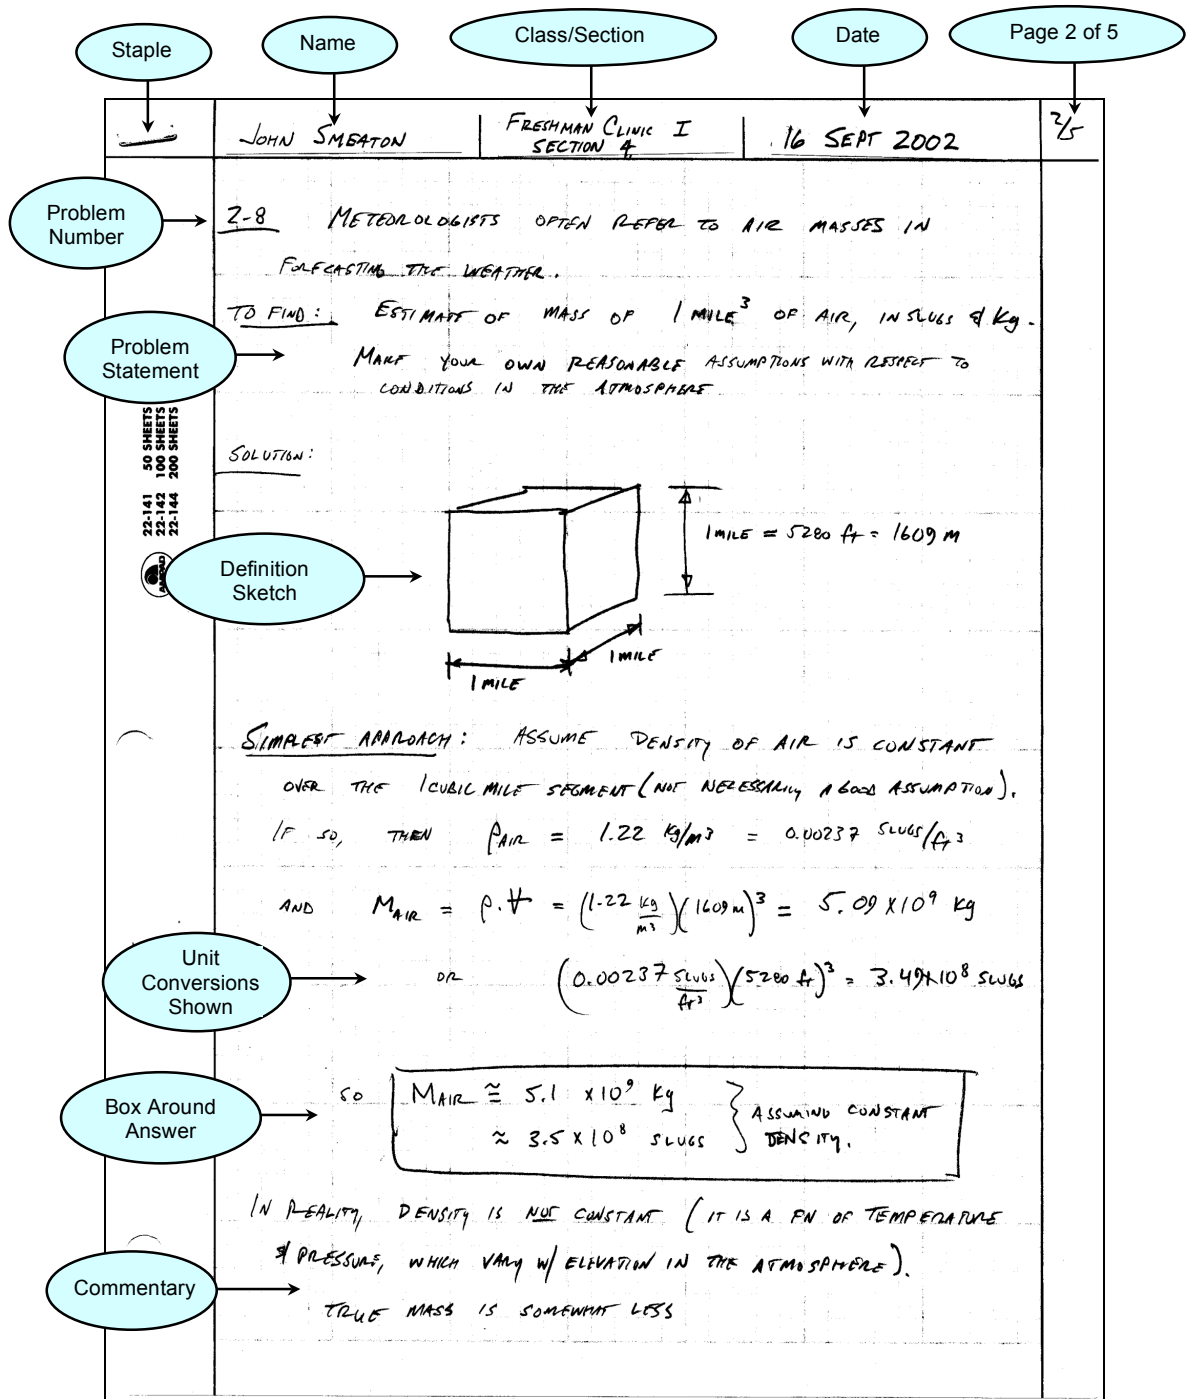 Staple
Name
Class/Section
Date
Page 2 of 5
JOHN SMEATON
FRESHMAN CLINIC I
SECTION 4
16 SEPT 2002
2/5
Problem
Number
2-8 METEOROLOGISTS OFTEN REFER TO AIR MASSES IN
FORECASTING THE WEATHER.
TO FIND: ESTIMATE OF MASS OF 1 MILE³ OF AIR, IN SLUGS & Kg.
Problem
Statement
MAKE YOUR OWN REASONABLE ASSUMPTIONS WITH RESPECT TO
CONDITIONS IN THE ATMOSPHERE
22-141 50 SHEETS
22-142 100 SHEETS
22-144 200 SHEETS
AMPAD
SOLUTION:
1 MILE = 5280 ft = 1609 m
Definition
Sketch
1 MILE
1 MILE
SIMPLEST APPROACH: ASSUME DENSITY OF AIR IS CONSTANT
OVER THE 1 CUBIC MILE SEGMENT (NOT NECESSARILY A GOOD ASSUMPTION).
IF SO, THEN ρAIR = 1.22 Kg/m3 = 0.00237 SLUGS/ft3
AND MAIR = ρ.V = (1.22 kg/m3)(1609 m)³ = 5.09 X10⁹ Kg
Unit
Conversions
Shown
OR (0.00237 SLUGS/ft³)(5280 ft)³ = 3.49X10⁸ SLUGS
Box Around
Answer
SO MAIR ≅ 5.1 X10⁹ Kg
≈ 3.5 X 10⁸ SLUGS
} ASSUMING CONSTANT
DENSITY.
IN REALITY, DENSITY IS NOT CONSTANT (IT IS A FN OF TEMPERATURE
& PRESSURE, WHICH VARY W/ ELEVATION IN THE ATMOSPHERE).
Commentary
TRUE MASS IS SOMEWHAT LESS